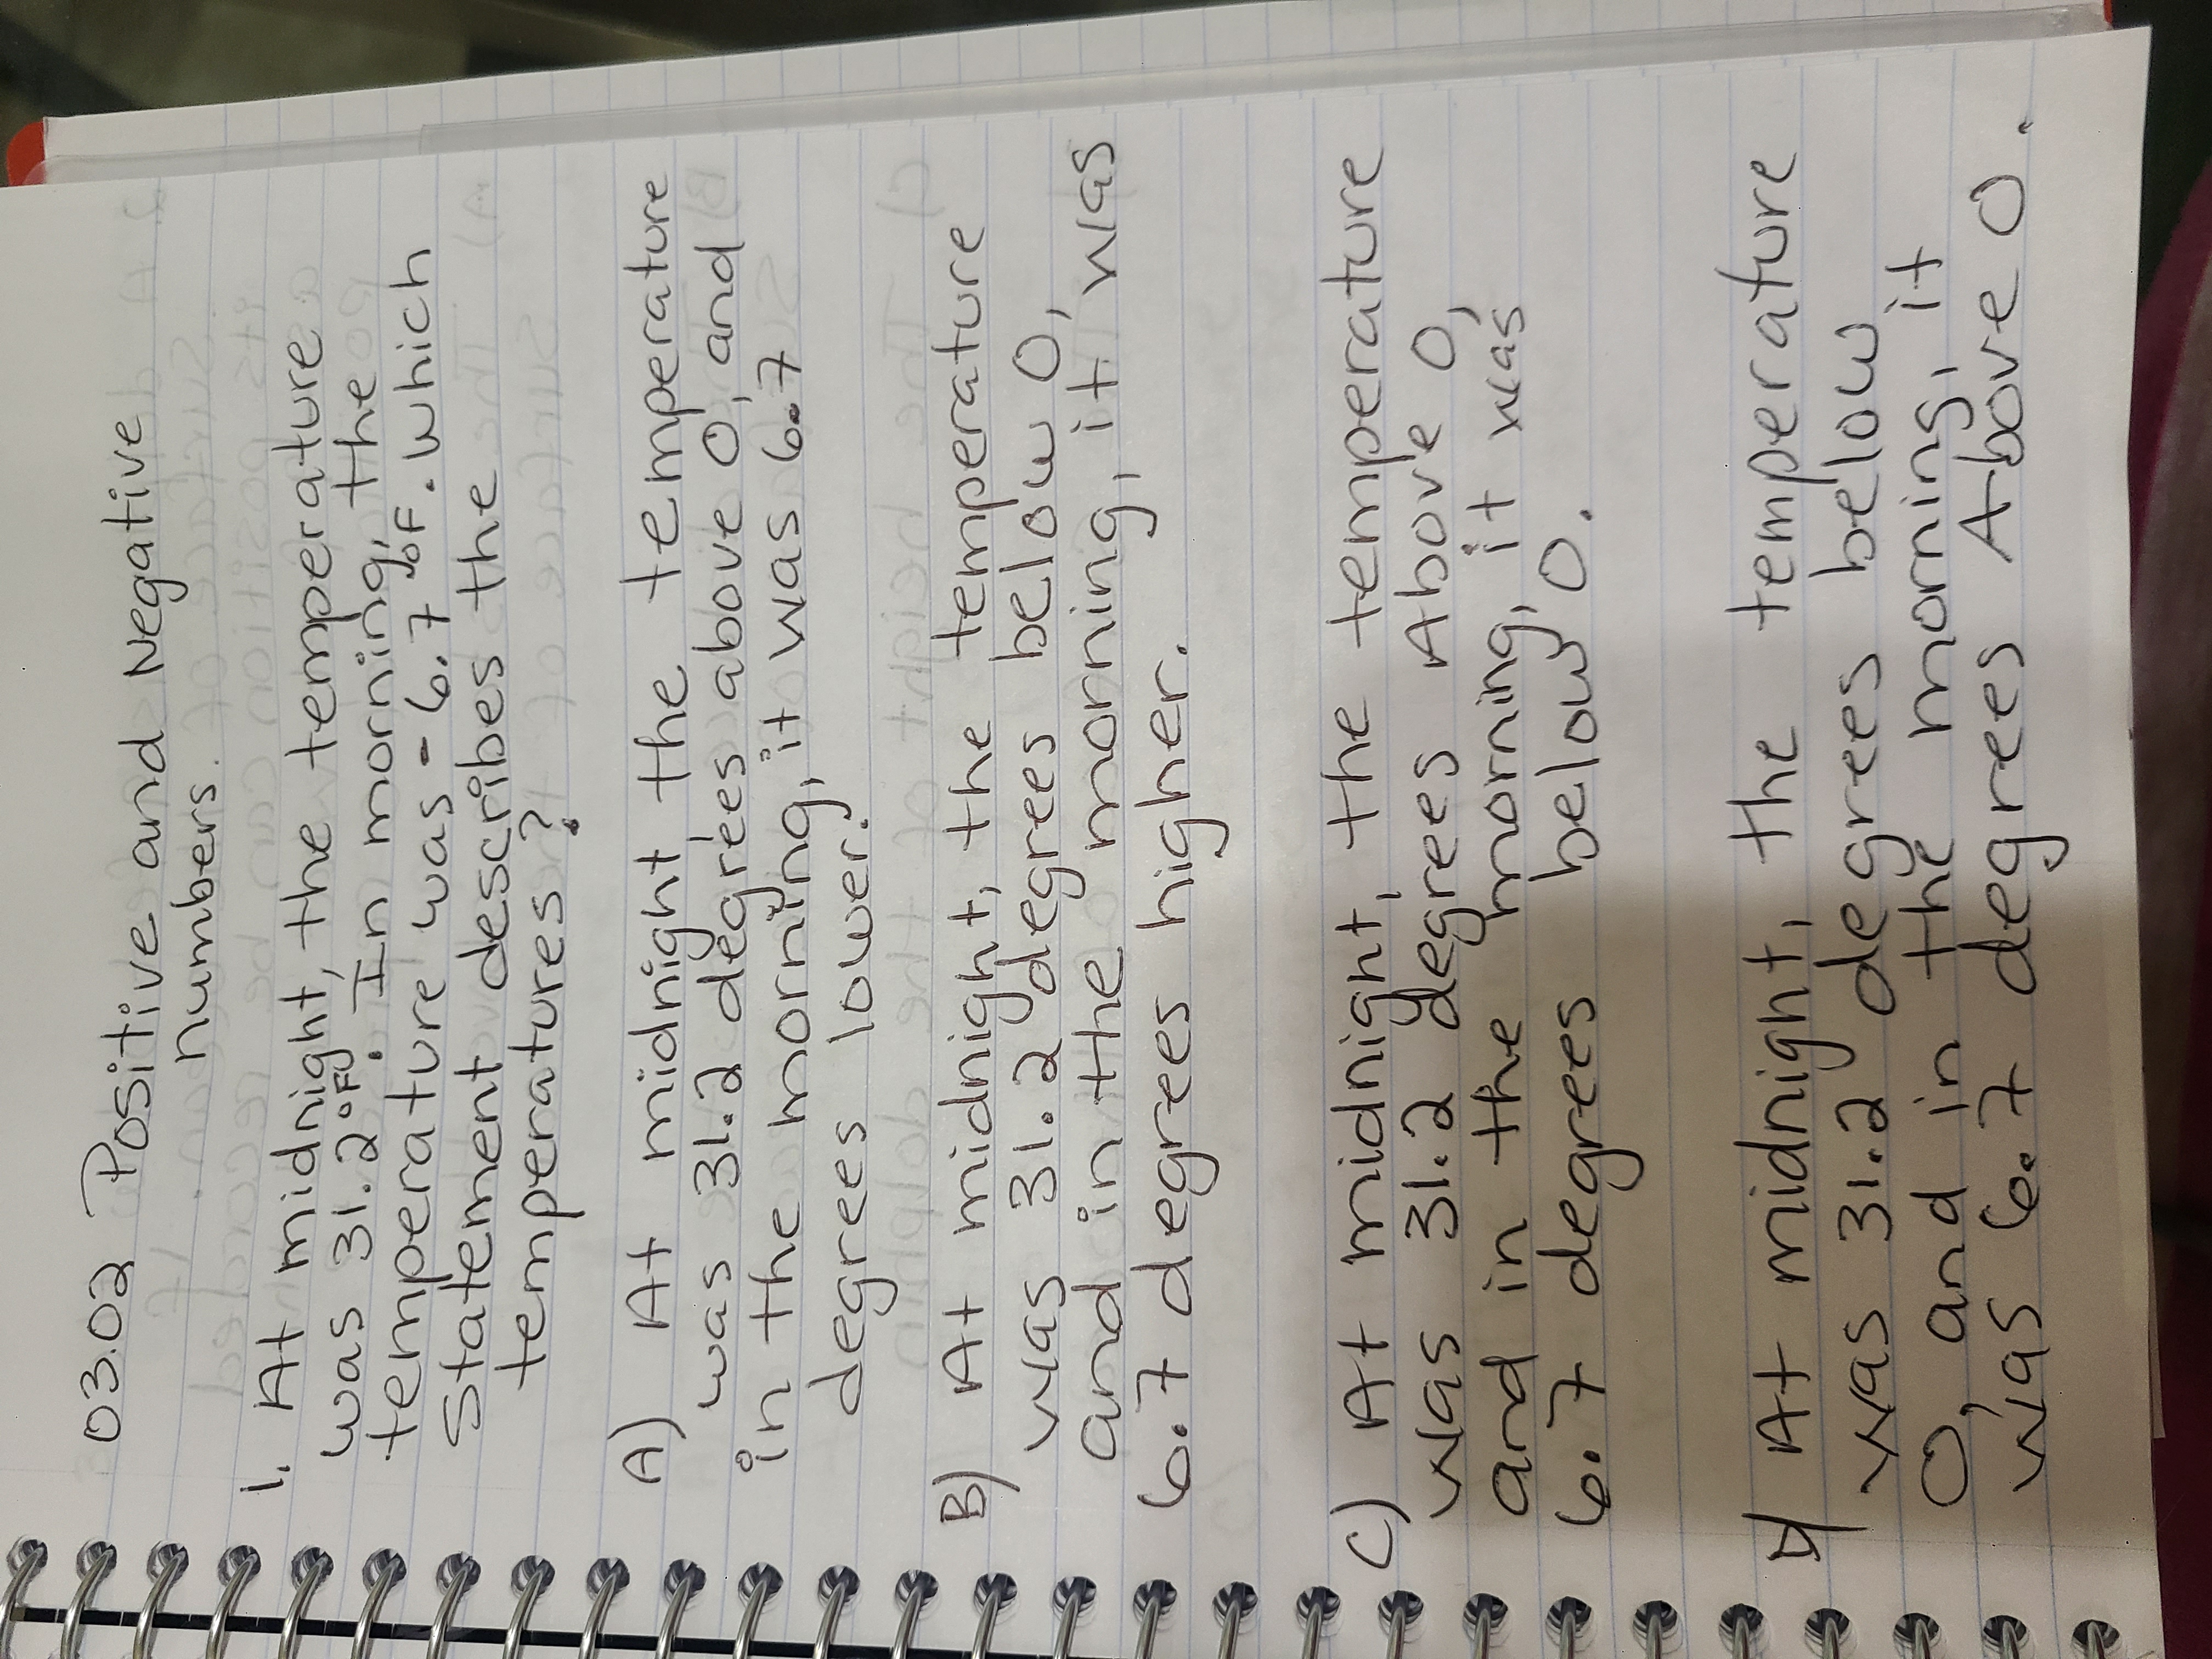 03.02 Positive and Negative
numbers.
1. At midnight, the temperature
was 31.2°F. In morning, the
temperature was -6.7°F. which
Statement describes the
temperatures?
A) At midnight the temperature
was 31.2 degrees above 0, and
in the morning, it was 6.7
degrees lower.
B) At midnight, the temperature
was 31.2 degrees below 0,
and in the morning, it was
6.7 degrees higher.
C) At midnight, the temperature
was 31.2 degrees Above 0,
and in the morning, it was
6.7 degrees below 0.
D) At midnight, the temperature
was 31.2 degrees below
0, and in the morning, it
was 6.7 degrees Above 0.